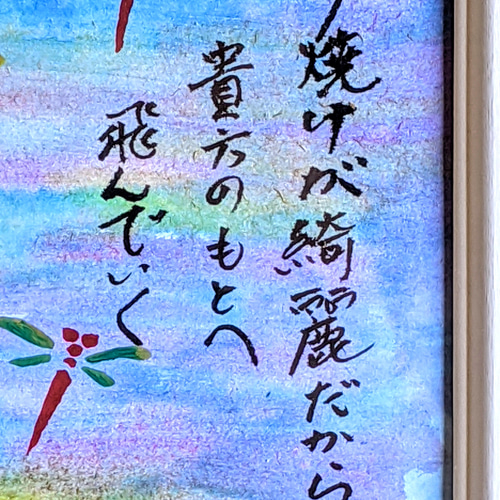 焼けが綺麗だから
貴方のもとへ
飛んでいく